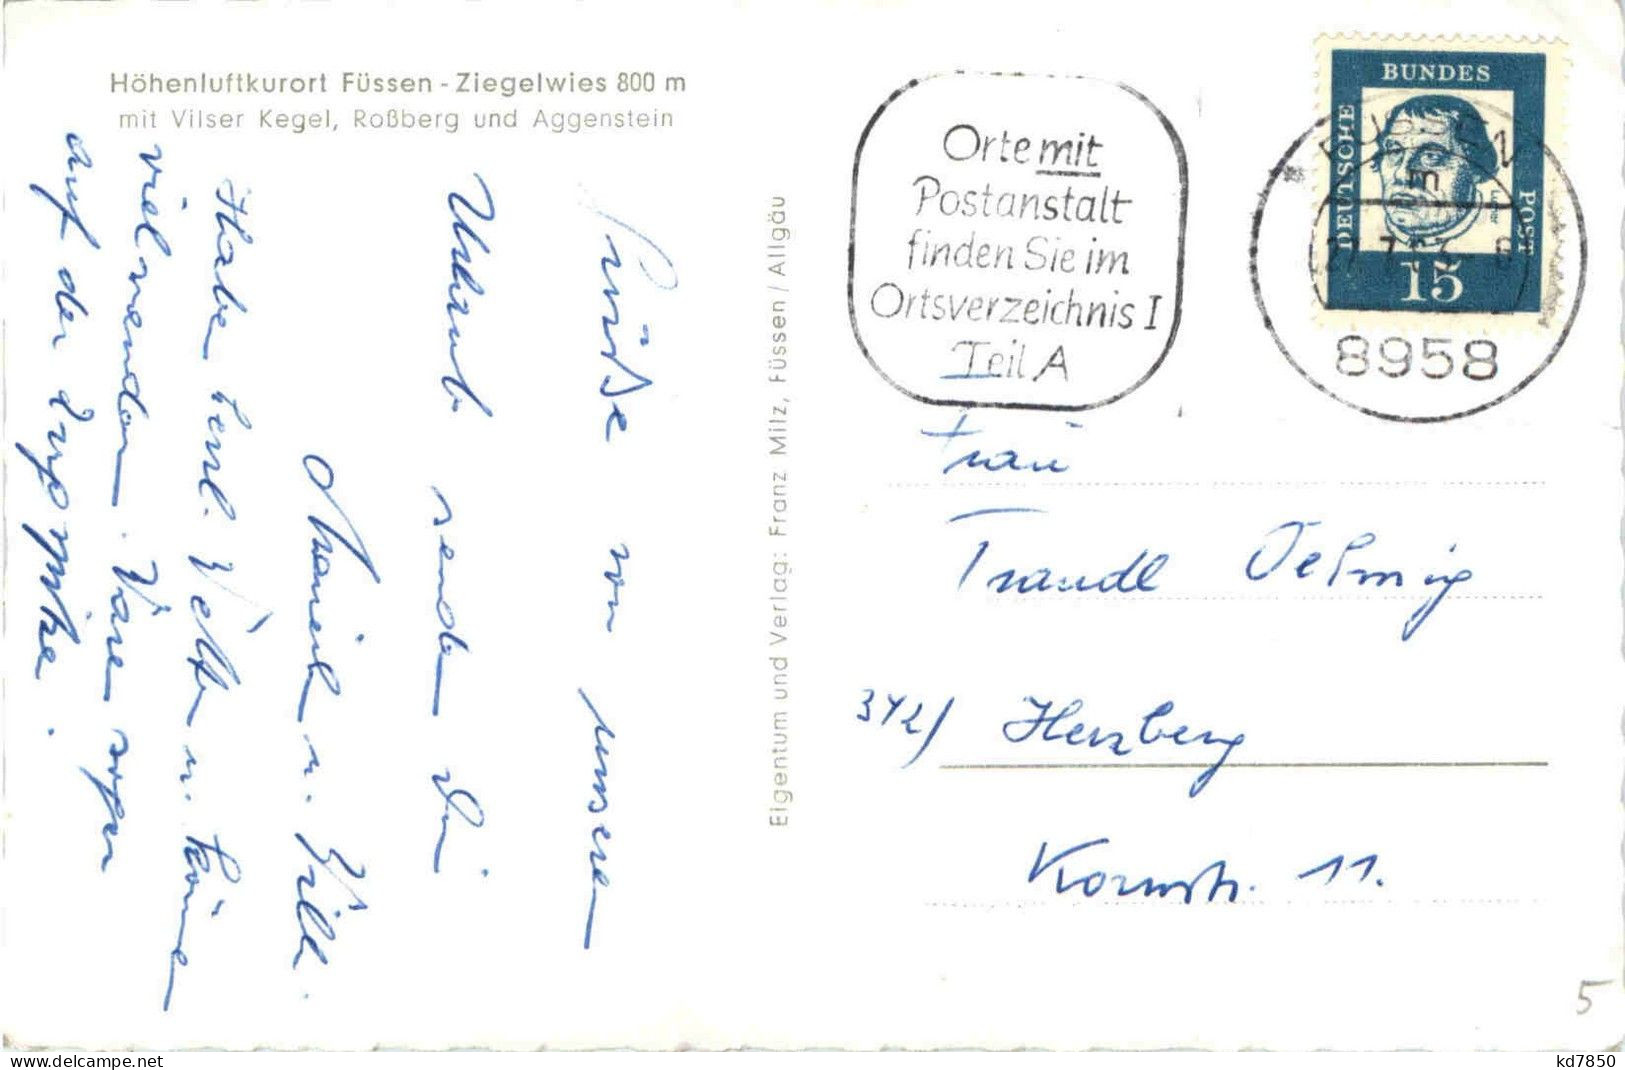 Höhenluftkurort Füssen - Ziegelwies 800 m
mit Vilser Kegel, Roßberg und Aggenstein
Grüße von unserem
Urlaub senden Dir
u. Willi.
Habe herrl. Wetter u. können
viel wandern. Waren sogar
auf der Zugspitze.
Eigentum und Verlag: Franz Milz, Füssen / Allgäu
Orte mit
Postanstalt
finden Sie im
Ortsverzeichnis I
Teil A
DEUTSCHE
BUNDES
POST
Luther
15
FÜSSEN
8958
Frau
Traudl Oehmig
342/ Herzberg
Kornstr. 11.
5
delcampe.net
kd7850